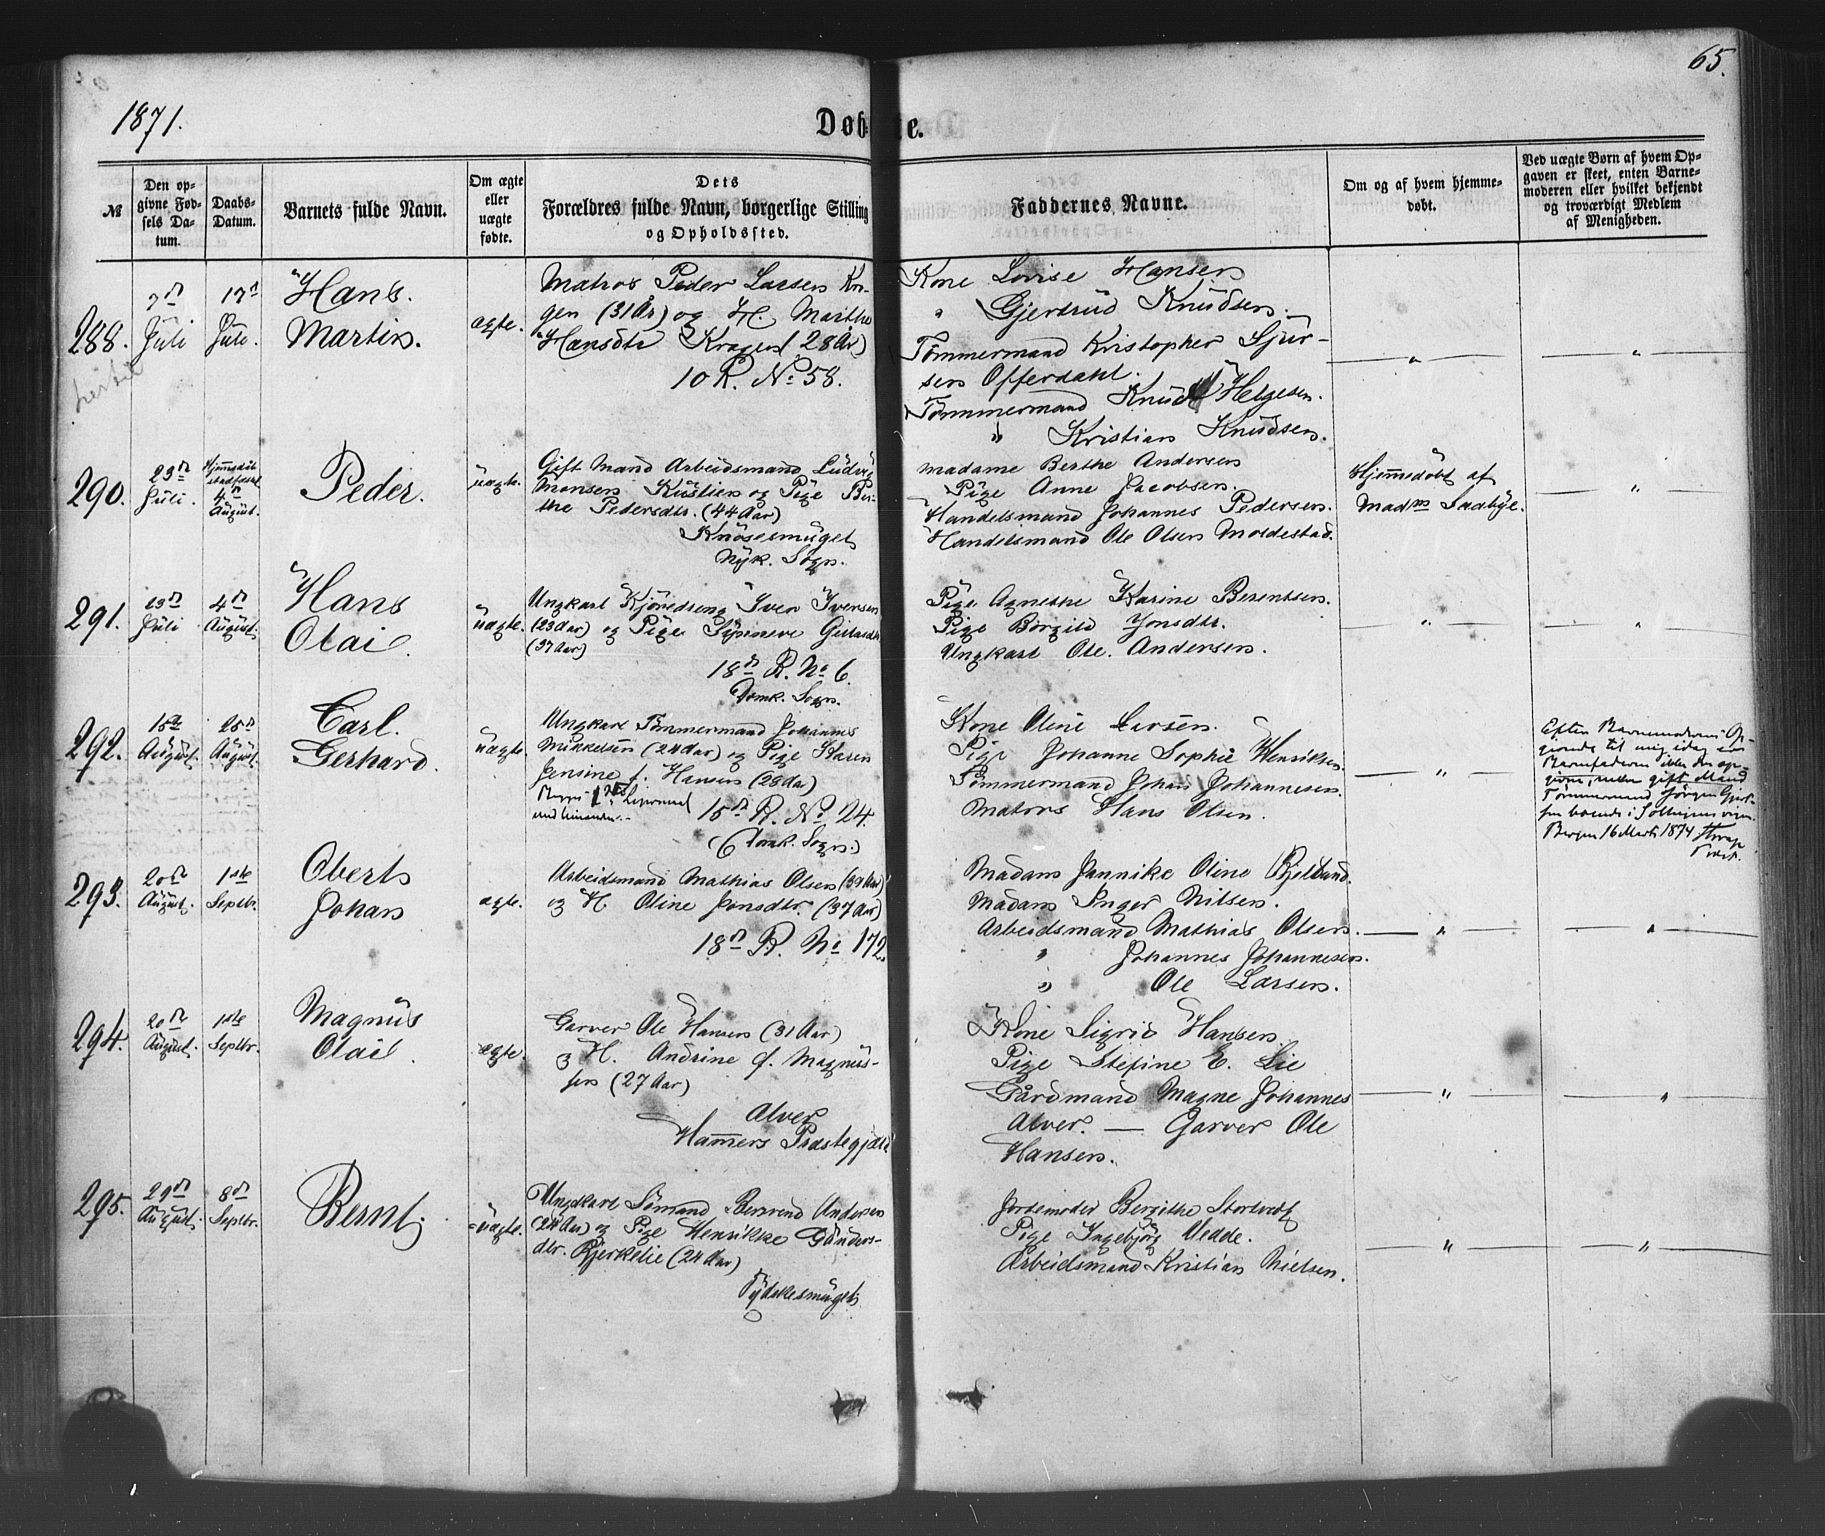 65.
1871.
Døb te.
№
Den op-
givne Fød-
sels Da-
tum.
Daabs-
Datum.
Barnets fulde Navn.
Om ægte
eller
uægte
fødte.
Dets
Forældres fulde Navn, borgerlige Stilling
og Opholdssted.
Faddernes Navne.
Om og af hvem hjemme-
døbt.
Ved uægte Børn af hvem Op-
gaven er skeet, enten Barne-
moderen eller hvilket bekjendt
og troværdigt Medlem
af Menigheden.
288.
7de
Juli
17de
Juli.
Hans.
Martin.
ægte.
Matros Peder Larsen Kra-
gen (31 År) og H. Marthe
Hansdtr Kragen (28 År)
10 R. No 58.
Kone Lovise Hansen
„ Gjertrud Knudsen.
Tømmermand Kristopher Sjur-
sen Offerdahl.
Tømmermand Knud Helgesen.
„ Kristian Knudsen.
— „ —
„
290.
23de
Juli.
Hjemmedøbt
stadfæstet
4de
August.
Peder.
uægte.
Gift Mand Arbeidsmand Ludvig
Monsen og Pige Ber-
the Pedersdtr. (44 Aar)
Knøsesmuget
Nyk. Sogn.
Madame Berthe Andersen
Pige Anne Jacobsen.
Handelsmand Johannes Pedersen.
Handelsmand Ole Olsen Moldestad.
Hjemmedøbt af
Madm Sadbye.
— „ —
291.
23de
Juli
4de
August.
Hans
Olai.
uægte.
Ungkarl Iver Iversen
(23 Aar) og Pige
(37 Aar)
18de R. No 6.
Domk. Sogn.
Pige Agnethe Karine Berentsen.
Pige Borgild Jonsdtr.
Ungkarl Ole Andersen.
— „ —
„
292.
15de
August.
25de
August.
Carl.
Gerhard.
uægte.
Ungkarl Tømmermand Johannes
Mikkelsen (24 Aar) og Pige Karen
Jensine f. Hansen (28 Aar)
15de R. No 24.
(Domk. Sogn.)
Kone Oline Larsen.
Pige Johanne Sophie Henriksen.
Tømmermand Johan Johannesen.
Matros Hans Olsen.
— „ —
Efter Barnemoderens Op-
givende til mig idag er
Barnefaderen ikke den op-
givne, men gift Mand
Tømmermand Jørgen
boende i
Bergen 16 Marts 1874
293.
20de
August.
1ste
Septbr.
Oberts
Johan
ægte.
Arbeidsmand Mathias Olsen (39 Aar)
og H. Oline Jonsdtr. (37 Aar)
18de R. No 172.
Madam Jannike Oline
Madam Inger Nilsen.
Arbeidsmand Mathias Olsen.
„ Johannes Johannesen.
„ Ole Larsen.
— „ —
— „ —
294.
20de
August.
1ste
Septbr.
Magnus
Olai.
ægte.
Garver Ole Hansen (31 Aar)
og H. Andrine f. Magnus-
sen (27 Aar)
Alver
Hammers Præstegjæld
Kone Sigrid Hansen.
Pige Stefine E. Lie
Gårdmand Magne Johannes
Alver. — Garver Ole
Hansen.
— „ —
— „ —
295.
29de
August.
8de
Septbr.
Bernt.
uægte.
Ungkarl Sømand Berend Andersen
(24 Aar) og Pige Henrikke Gunders-
dtr. Bjerkelie (24 Aar)
Tydskesmuget
Jordemoder Bergithe Stortvedt
Pige Ingebjørg Vedde.
Arbeidsmand Kristian Nielsen.
— „ —
— „ —